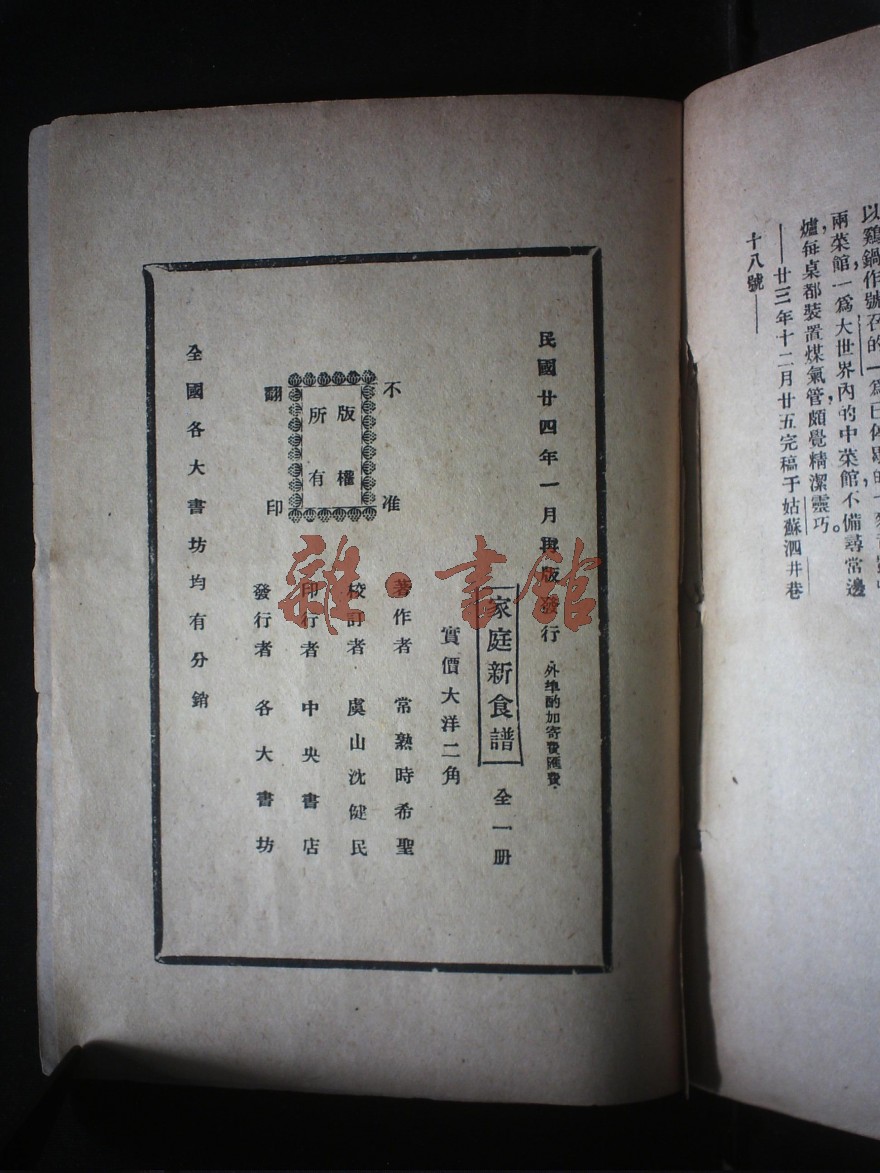 以鷄鍋作號召的
兩菜館一爲大世界內的中菜館不備尋常邊
爐，每桌都裝置煤氣管，頗覺精潔靈巧。
——廿三年十二月廿五完稿于姑蘇泗井巷
十八號——
民國廿四年一月再版發行
·外埠酌加寄費匯費·
家庭新食譜 全一册
實價大洋二角
不准
翻印
版權
所有
著作者 常熟時希聖
校訂者 虞山沈健民
印行者 中央書店
發行者 各大書坊
全國各大書坊均有分銷
雜·書館